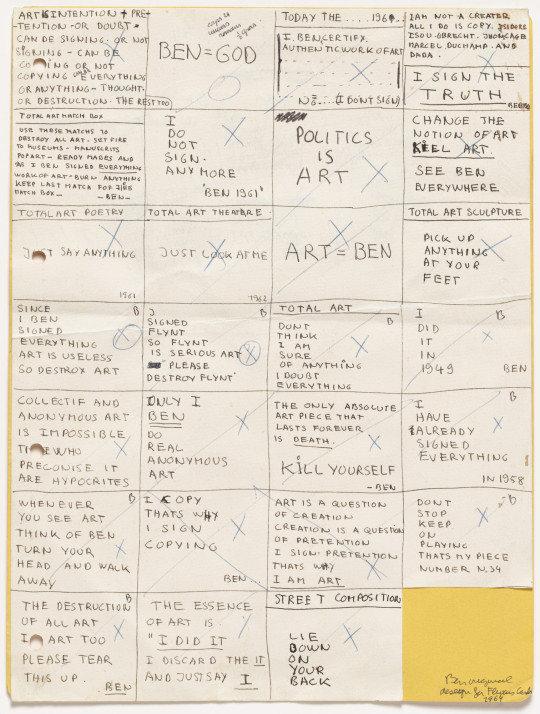 ART = INTENTION + PRE-
TENTION - OR DOUBT -
CAN BE SIGNING - OR NOT
SIGNING - CAN BE
COPYING OR NOT
COPYING EVERYTHING
OR ANYTHING - THOUGHT -
OR DESTRUCTION - THE REST TOO
BEN = GOD
TODAY THE .... 196.
I. BEN. CERTIFY.
AUTHENTIC WORK OF ART
Nº... (I DONT SIGN)
IAM NOT A CREATER
ALL I DO IS COPY. ISIDORE
ISOU - GBRECHT - JHON CAGE
MARCEL DUCHAMP - AND
DADA.
I SIGN THE
TRUTH
BEN
TOTAL ART MATCH BOX
USE THESE MATCHS TO
DESTROY ALL ART - SET FIRE
TO MUSEUMS - MANUSCRITS
POP ART - READY MAGES AND
AS I BEN SIGNED EVERYTHING
WORK OF ART - BURN ANYTHING
KEEP LAST MATCH FOR THIS
MATCH BOX -
- BEN -
I
DO
NOT
SIGN.
ANY MORE
'BEN 1961'
POLITICS
IS
ART
CHANGE THE
NOTION OF ART
KILL ART.
SEE BEN
EVERYWHERE
TOTAL ART POETRY
JUST SAY ANYTHING
1961
TOTAL ART THEATRE.
JUST LOOK AT ME
1962
ART = BEN
TOTAL ART SCULPTURE
PICK UP
ANYTHING
AT YOUR
FEET
SINCE B
I BEN
SIGNED
EVERYTHING
ART IS USELESS
SO DESTROX ART
J B
SIGNED
FLYNT
SO FLYNT
IS SERIOUS ART
"PLEASE
DESTROY FLYNT"
TOTAL ART
DONT B
THINK
I AM
SURE
OF ANYTHING
I DOUBT
EVERYTHING
I B
DID
IT
IN
1949 BEN
COLLECTIF AND
ANONYMOUS ART
IS IMPOSSIBLE
WHO
PRECONISE IT
ARE HYPOCRITES
ONLY I
BEN
DO
REAL
ANONYMOUS
ART
THE ONLY ABSOLUTE
ART PIECE THAT
LASTS FOREVER
IS DEATH.
KILL YOURSELF
- BEN
I B
HAVE
ALREADY
SIGNED
EVERYTHING
IN 1958
WHENEVER B
YOU SEE ART
THINK OF BEN
TURN YOUR
HEAD AND WALK
AWAY
I COPY
THATS WHY
I SIGN
COPYING
BEN...
ART IS A QUESTION
OF CREATION
CREATION IS A QUESTION
OF PRETENTION
I SIGN. PRETENTION
THATS WHY
I AM ART
DONT B
STOP
KEEP
ON
PLAYING
THATS MY PIECE
NUMBER N.34
THE DESTRUCTION B
OF ALL ART
ART TOO
PLEASE TEAR
THIS UP.
BEN
THE ESSENCE
OF ART IS.
"I DID IT
I DISCARD THE IT
AND JUST SAY I
STREET COMPOSITION
LIE
DOWN
ON
YOUR
BACK
Ben original
design for Fluxus Cards
1964